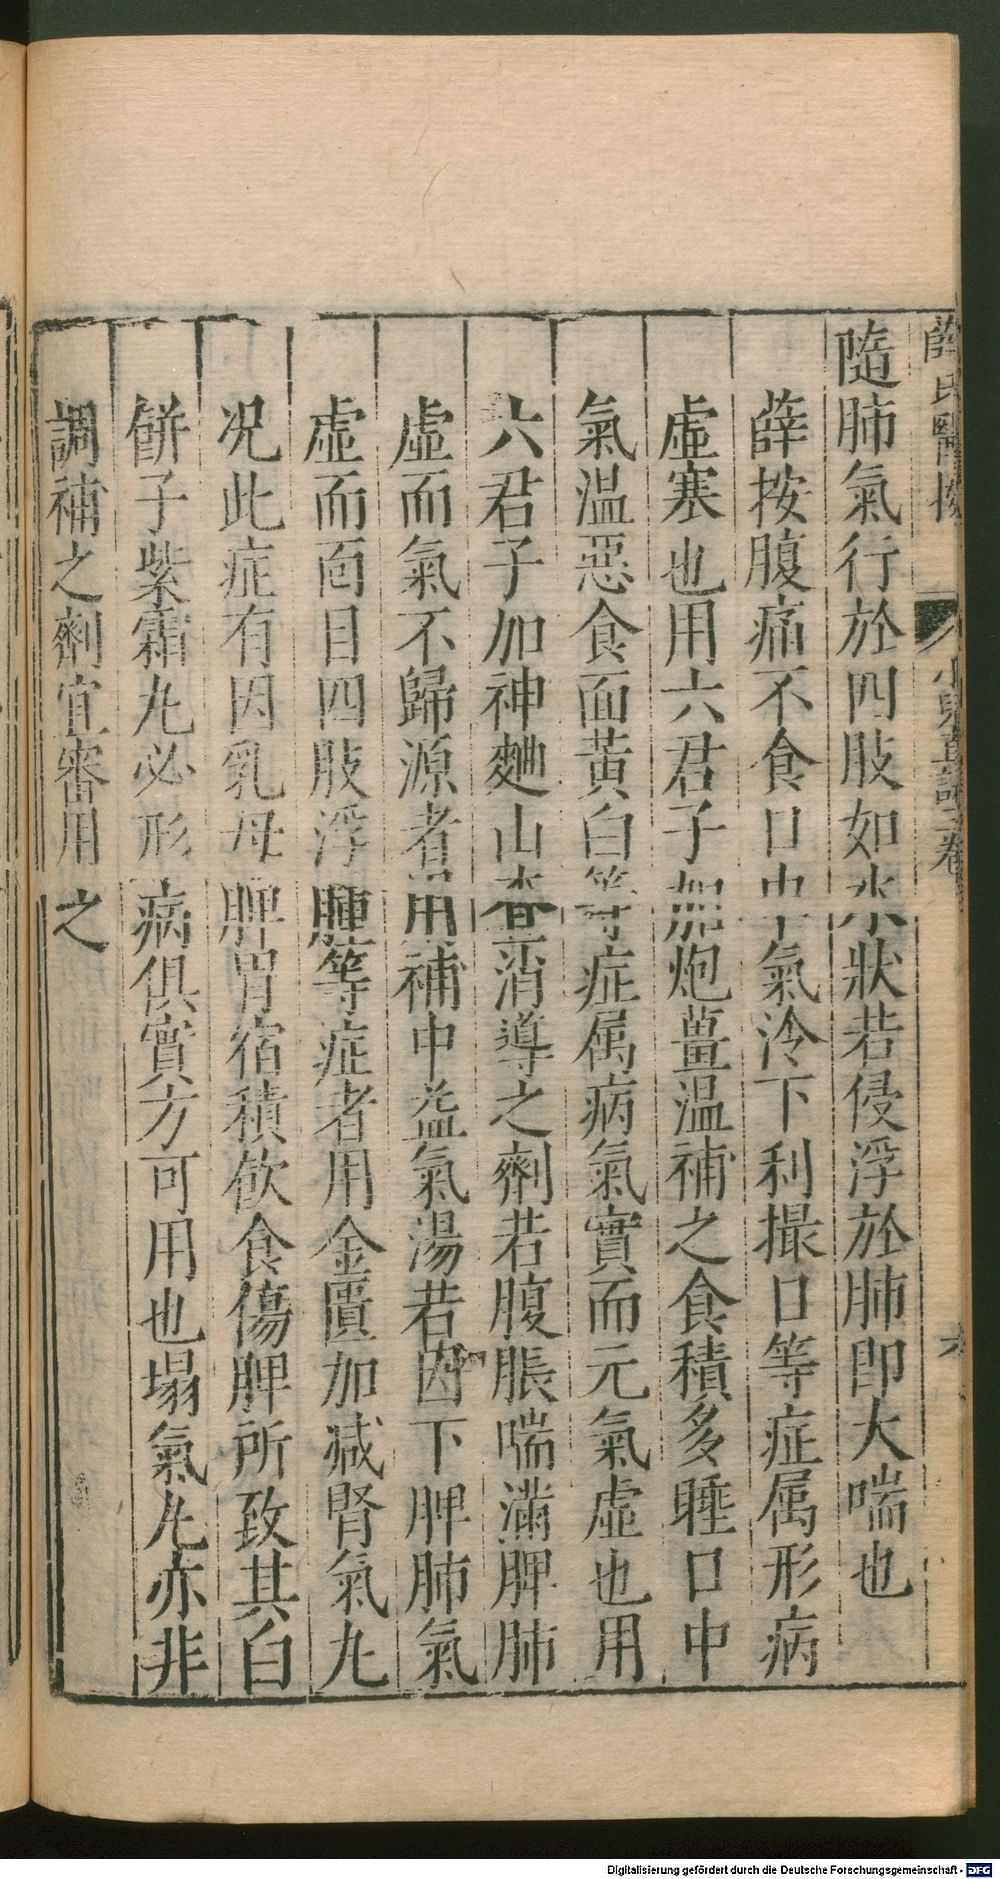 薛氏醫按 小兒直訣二卷 六
隨肺氣行於四肢如水狀若侵浮於肺即大喘也
薛按腹痛不食口中氣冷下利撮口等症属形病
虛塞也用六君子加炮薑温補之食積多睡口中
氣温惡食面黄白等症属病氣實而元氣虛也用
六君子加神麯山查消導之劑若腹脹喘滿脾肺
虛而氣不歸源者用補中益氣湯若因下脾肺氣
虛而面目四肢浮腫等症者用金匱加减腎氣丸
况此症有因乳母脾胃宿積飲食傷脾所致其白
餅子紫霜丸必形病俱實方可用也塌氣丸亦非
調補之劑宜審用之
Digitalisierung gefördert durch die Deutsche Forschungsgemeinschaft - DFG